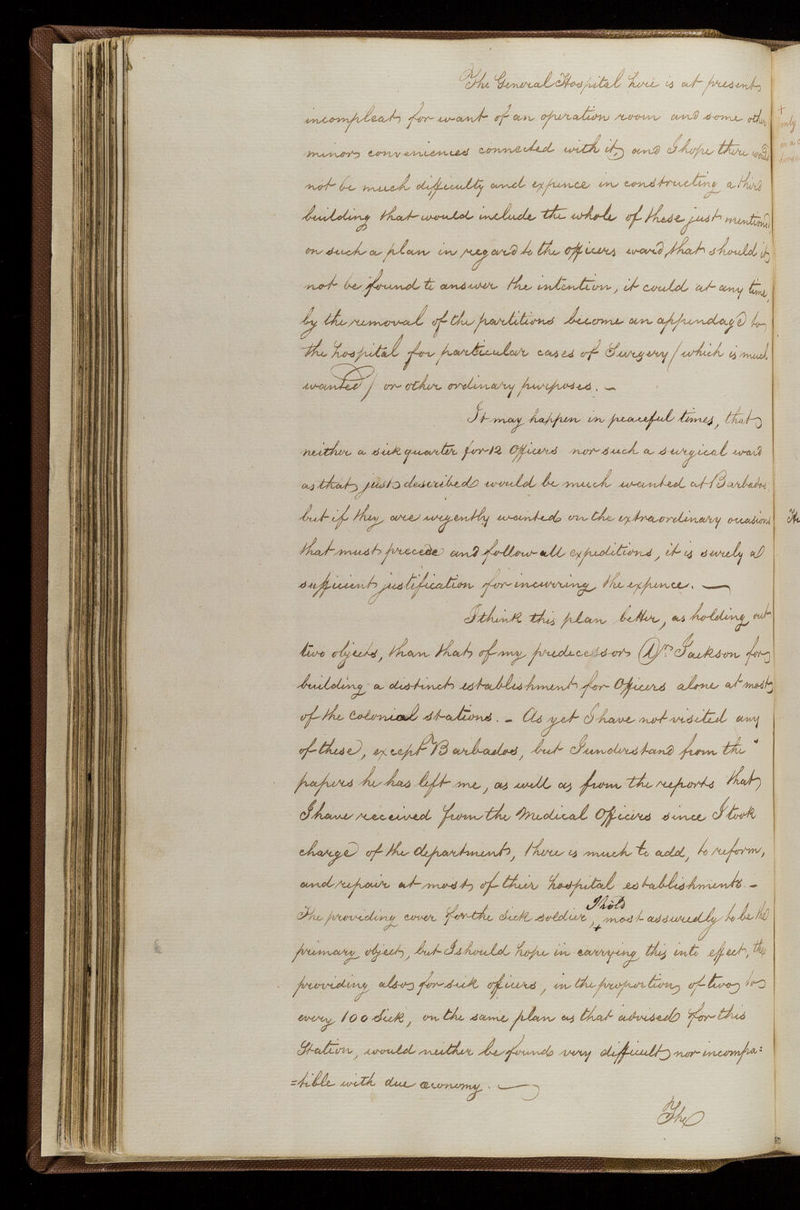 The General Hospital here is at present
incompleat for want of an operation room and some other
minor conveniences connected with it, and I hope there would
not be much difficulty and expence in constructing a third
building that would include the whole of these just mentioned
on such a plan in regard to the officers ward, that should it
not be found to answer the intention, it could at any time,
by the removal of the partitions become an appendage to
the hospital for particular cases of Surgery / which is much
wanted / or other ordinary purposes. -
It may happen in peaceful times, that
neither a sick quarter for 12 Officers nor such a surgical ward
as that just described would be much wanted at Barbados
but if they are urgently wanted on the extraordinary occasions
that must precede and follow all expeditions, it is surely a
sufficient justification for incurring the expence. —
I think this plan better, as holding out
two objects, than that of my predecessor Dr. Jackson for
building a distinct establishment for Officers alone at most
of the Colonial stations. - As yet I have not visited any
of these, except Barbados, but I understand from the
papers he has left me, as well as from the reports that
I have received from the Medical Officers since I took
charge of the department, there is much to add, to reform,
and repair at most of their hospital establishments -
The providing cover for the sick soldier, + most assuredly to be the
primary object, but I should hope in carrying this into effect, the
providing also for sick officers, in the proportion of two to
every 100 Sick, on the same plan as that advised for this
Station, would neither be found very difficult nor incompa=
=tible with due œconomy. —
The